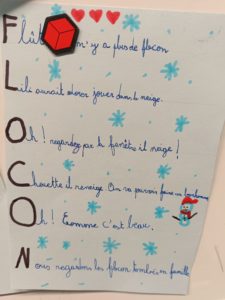 Flût n'y a plus de flocon
Lili aurait adorer jouer dans la neige.
Oh! regardez par la fenêtre il neige!
Chouette il reneige On va pouvoir faire un bonhomme
Oh! Comme c'est beau.
Nous regardons les flocon tombé en famille